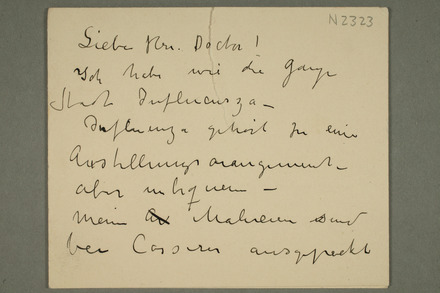 N2323
Liebe Hrn. Doctor!
Ich habe wie die ganze
Stadt Influenza –
Influenza gehört zu eine
Ausstellungsarangement
aber unbequem –
mein Malereien sind
bei Cassirer ausgepackt